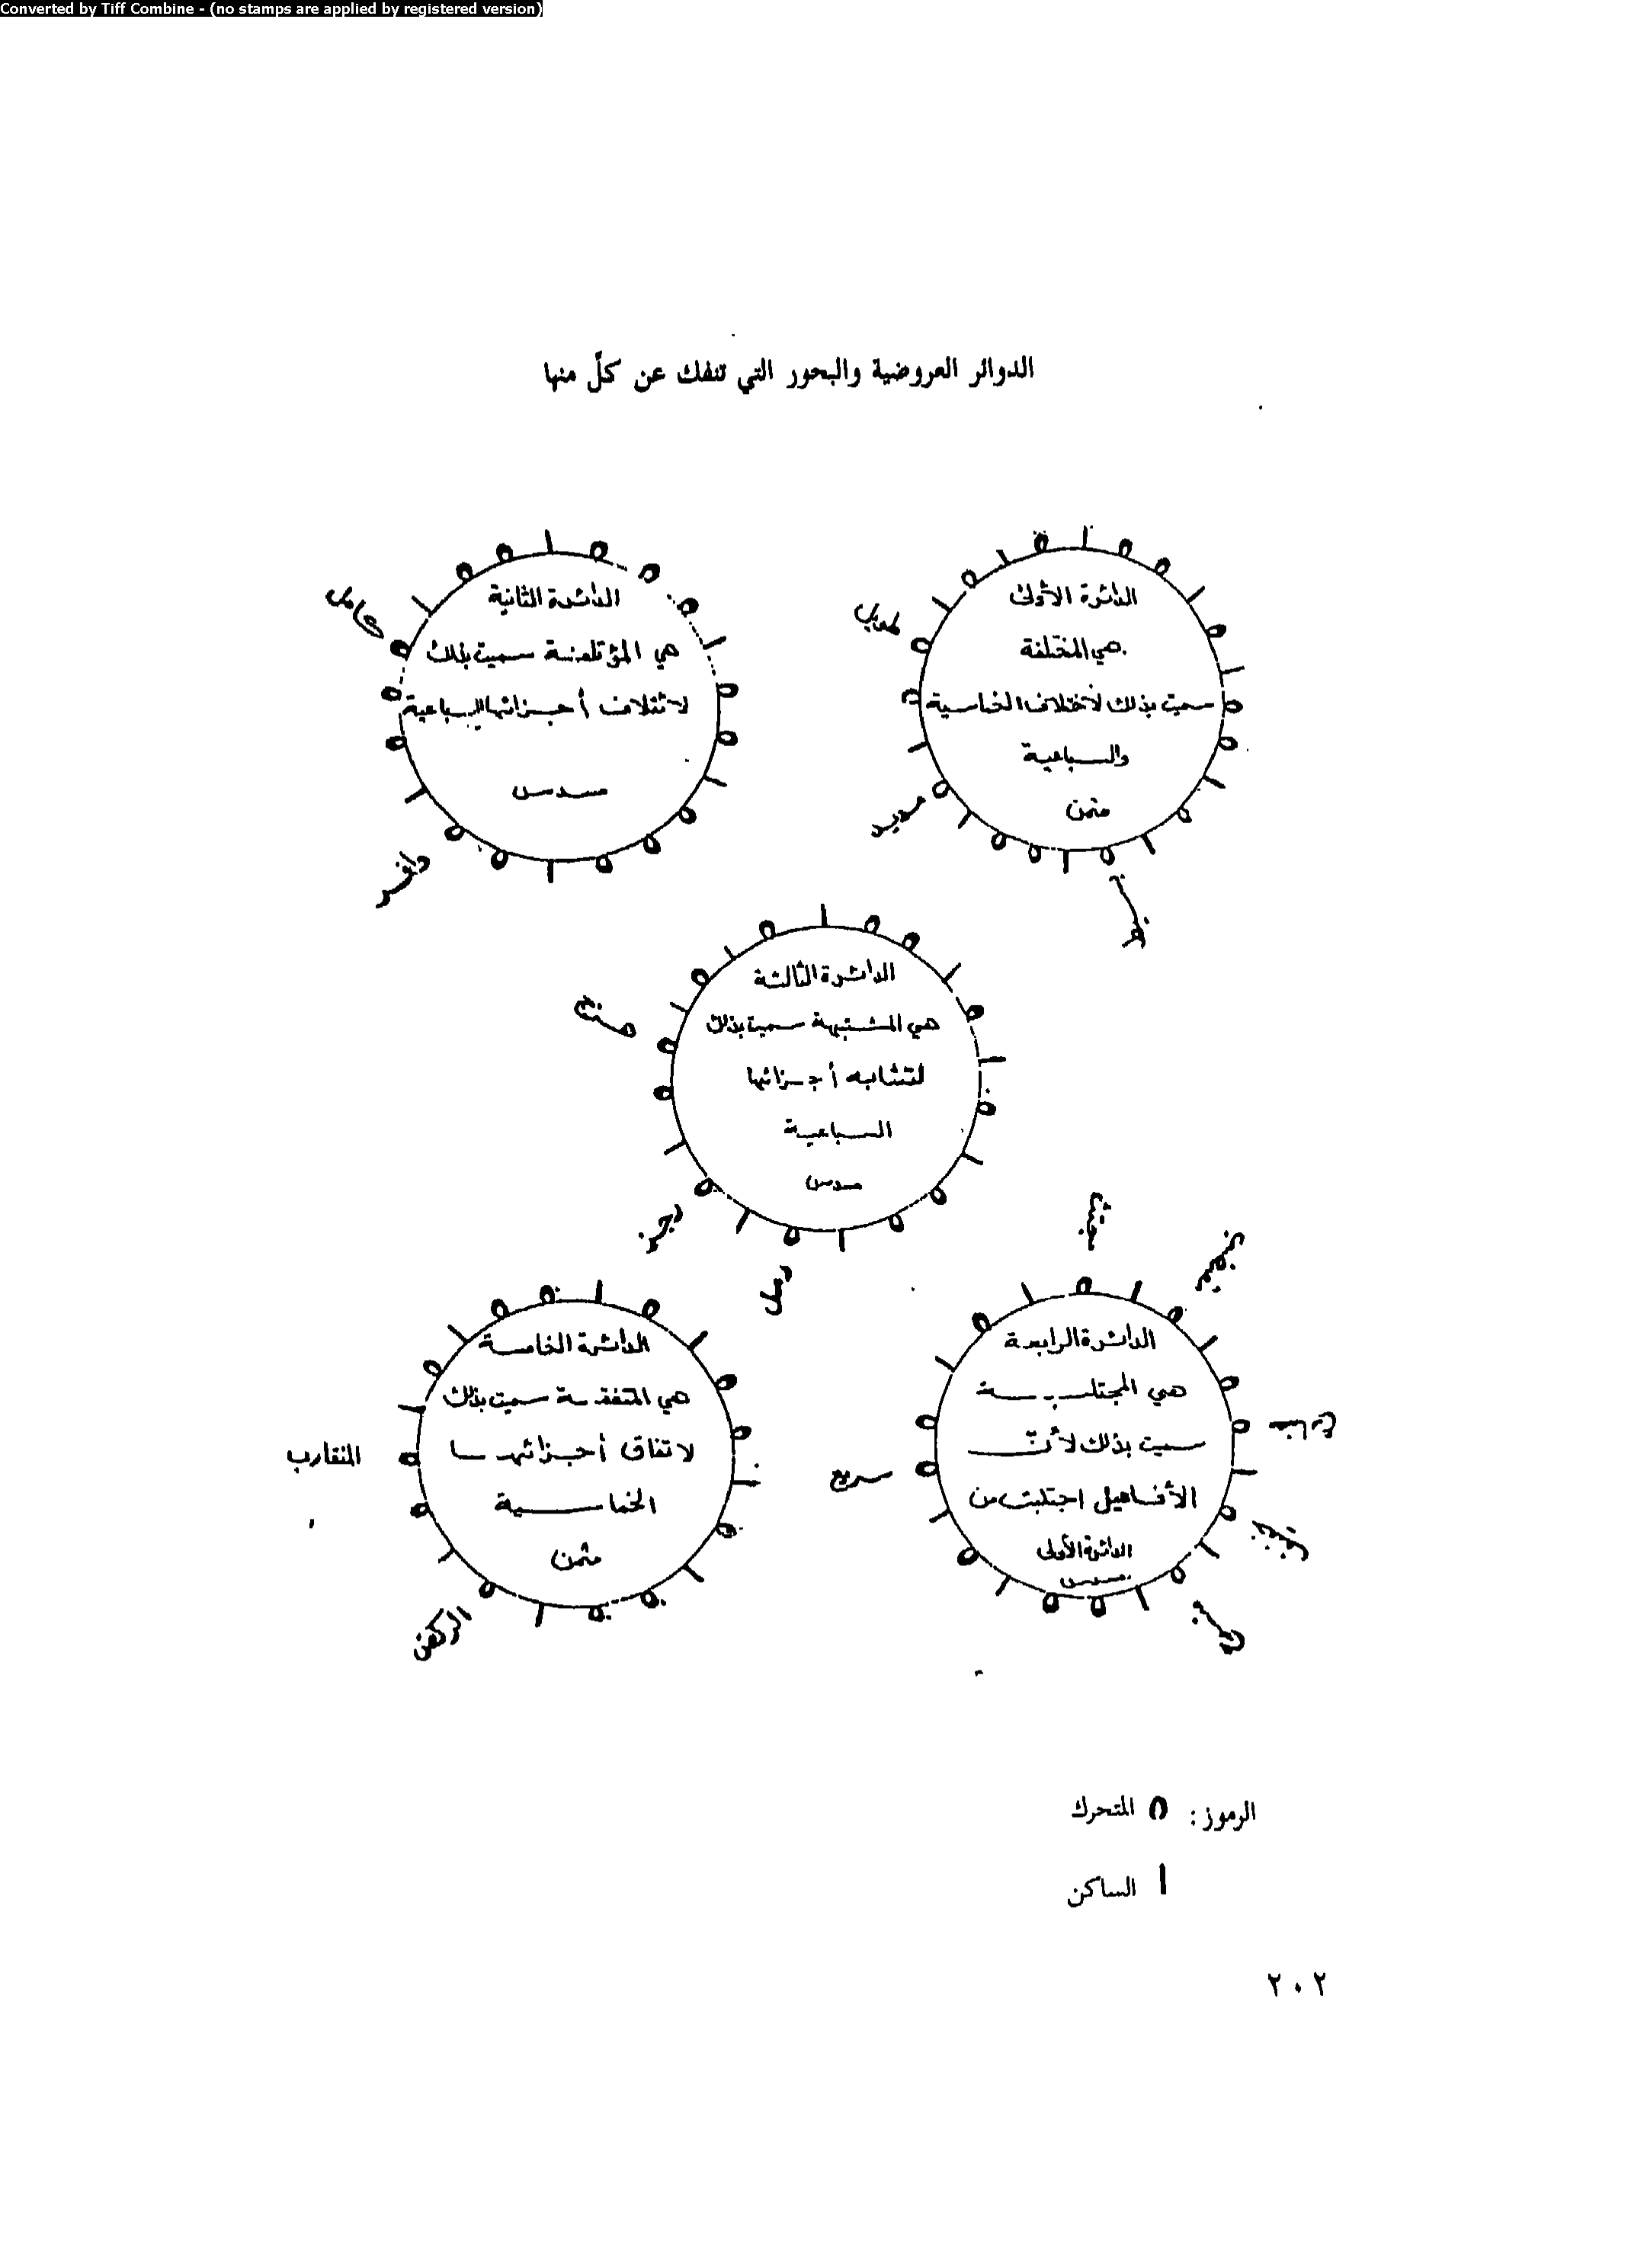 Converted by Tiff Combine - (no stamps are applied by registered version)
الدوائر العروضية والبحور التي تنفك عن كلّ منها
الدائرة الأولى
هي المختلفة
سميت بذلك لاختلاف الخماسية
والسباعية
مثمن
طويل
مديد
الدائرة الثانية
هي المؤتلفة سميت بذلك
لائتلاف أجزائها السباعية
مسدس
كامل
وافر
الدائرة الثالثة
هي المشتبهة سميت بذلك
لتشابه أجزائها
السباعية
مسدس
هزج
رجز
رمل
الدائرة الرابعة
هي المجتلبة
سميت بذلك لأنّ
الأفاعيل اجتلبت من
الدائرة الأولى
مسدس
سريع
خفيف
مضارع
الدائرة الخامسة
هي المتفقة سميت بذلك
لاتفاق أجزائها
الخماسية
مثمن
المتقارب
الركض
الرموز : ٥ المتحرك
ا الساكن
٢٠٢